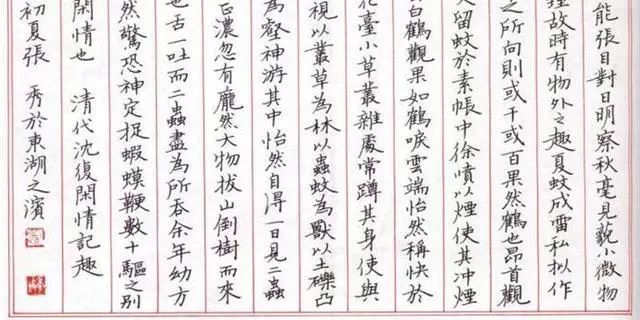 能張目對日明察秋毫見藐小微物
理故時有物外之趣夏蚊成雷私擬作
之所向則或千或百果然鶴也昂首觀
又留蚊於素帳中徐噴以煙使其冲煙
白鶴觀果如鶴唳雲端怡然稱快於
花臺小草叢雜處常蹲其身使與
視以叢草為林以蟲蚊為獸以土礫凸
為壑神游其中怡然自得一日見二蟲
正濃忽有龐然大物拔山倒樹而來
也舌一吐而二蟲盡為所吞余年幼方
然驚恐神定捉蝦蟆鞭數十驅之別
閑情也 清代沈復閑情記趣
初夏張 秀於東湖之濱